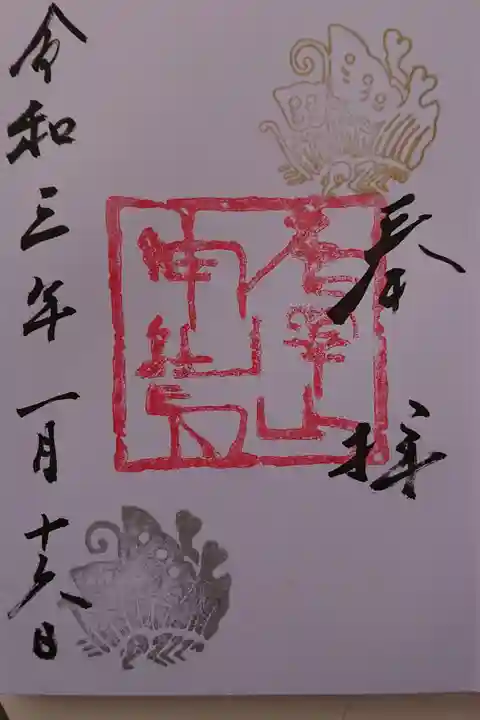 奉拝
令和三年一月十六日